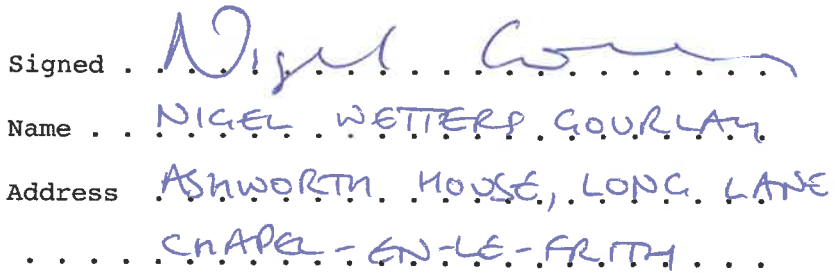 Signed . Nigel Go
Name . . NIGEL WETTERS GOURLAY
Address ASHWORTH HOUSE, LONG LANE
CHAPEL-EN-LE-FRITH